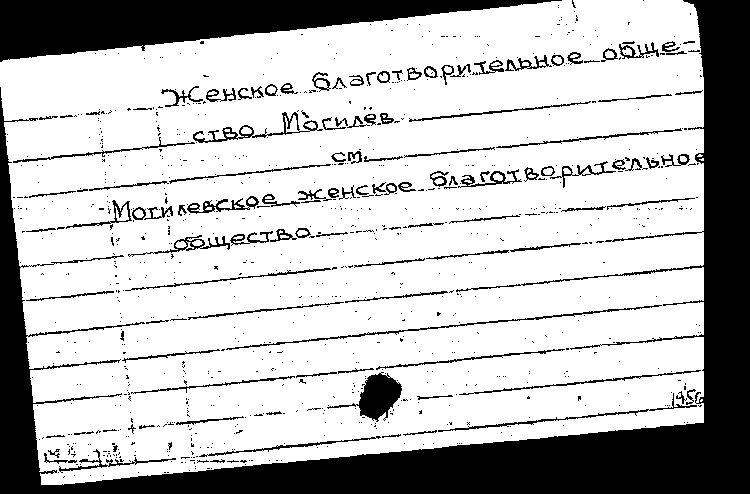 Женское благотворительное обще-
ство. Могилёв.
см.
Могилевское женское благотворительное
общество.
1956